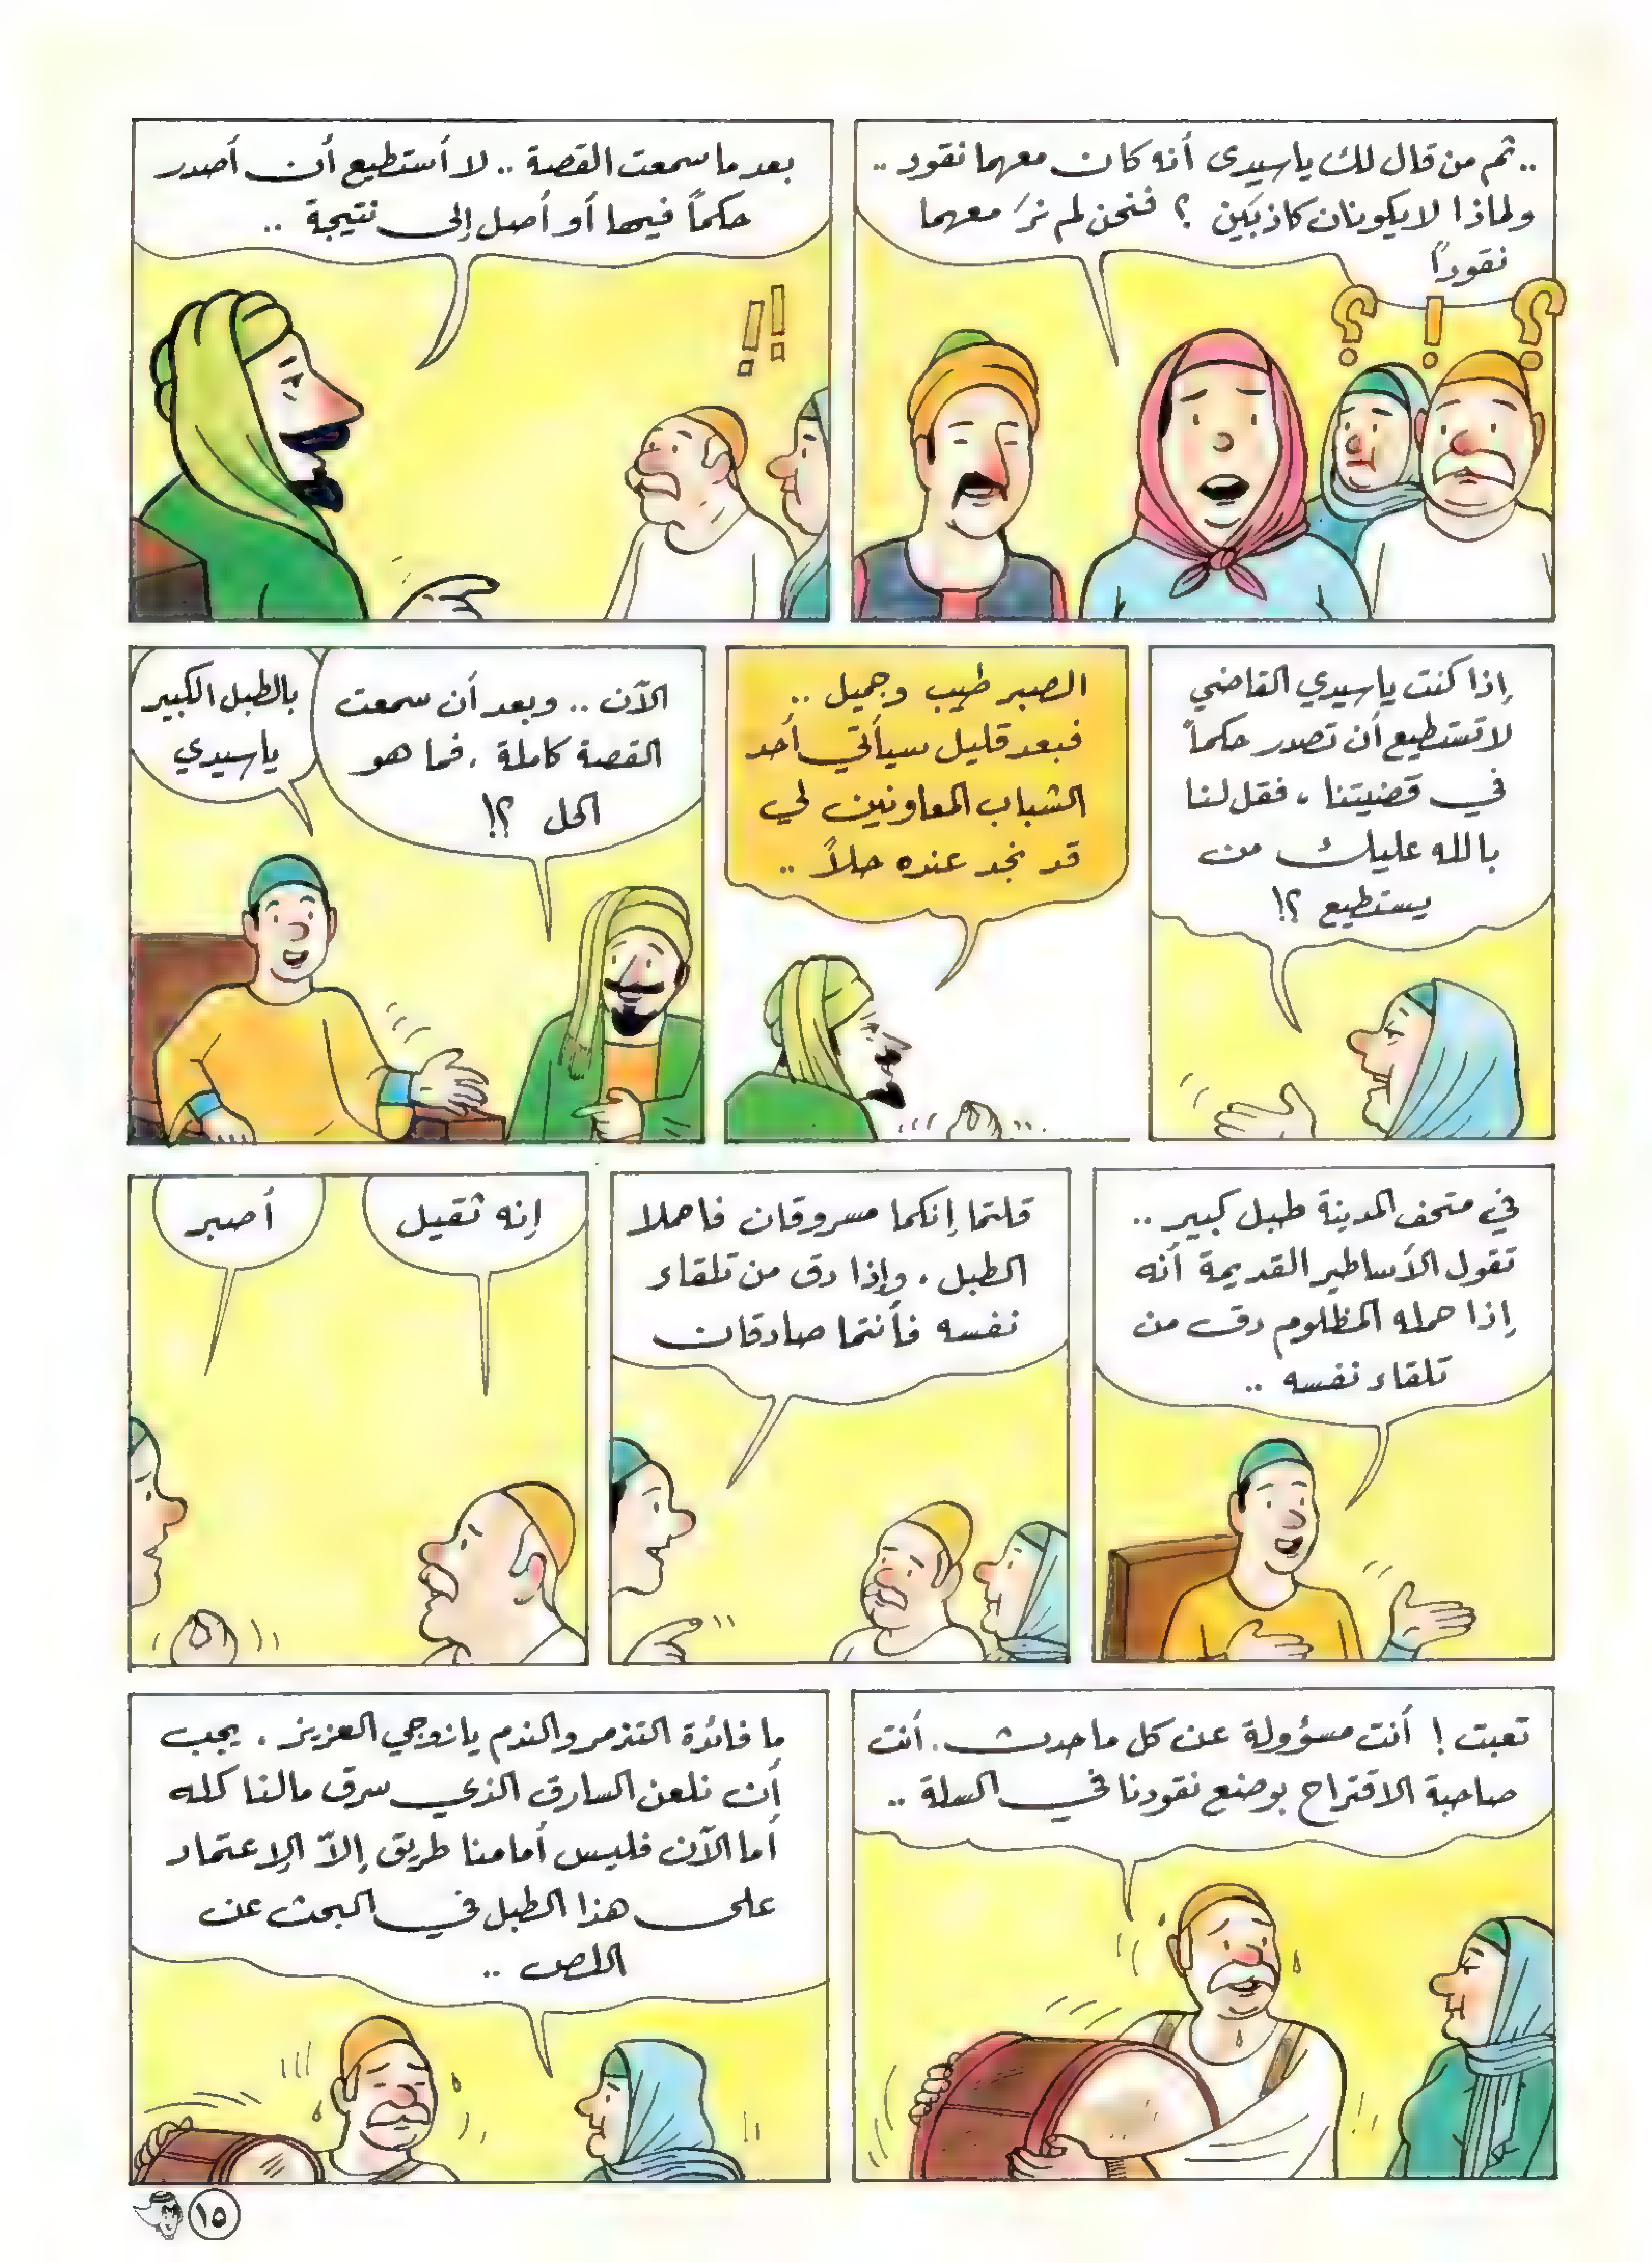 .. ثم من قال لك يا سيدى أنه كان معهما نقود ..
ولماذا لا يكونان كاذبَين ؟ فنحن لم نرَ معهما
نقوداً
؟ ! ؟
بعد ما سمعت القصة .. لا أستطيع أن أصدر
حكماً فيها أو أصل إلى نتيجة ..
!!
إذا كنت يا سيدي القاضي
لا تستطيع أن تصدر حكماً
في قضيتنا ، فقل لنا
بالله عليك من
يستطيع ؟!
الصبر طيب وجميل ..
فبعد قليل سيأتي أحد
الشباب المعاونين لي
قد نجد عنده حلاً ..
الآن .. وبعد أن سمعت
القصة كاملة ، فما هو
الحل ؟!
بالطبل الكبير
يا سيدي
في متحف المدينة طبل كبير ..
تقول الأساطير القديمة أنه
إذا حمله المظلوم دق من
تلقاء نفسه ..
قلتما إنكما مسروقان فاحملا
الطبل ، وإذا دق من تلقاء
نفسه فأنتما صادقان
إنه ثقيل
أصبر
تعبت ! أنت مسؤولة عن كل ما حدث . أنت
صاحبة الاقتراح بوضع نقودنا في السلة ..
ما فائدة التذمر والندم يا زوجي العزيز . يجب
أن نلعن السارق الذي سرق مالنا كله
أما الآن فليس أمامنا طريق إلاّ الإعتماد
على هذا الطبل في البحث عن
اللص ..
١٥